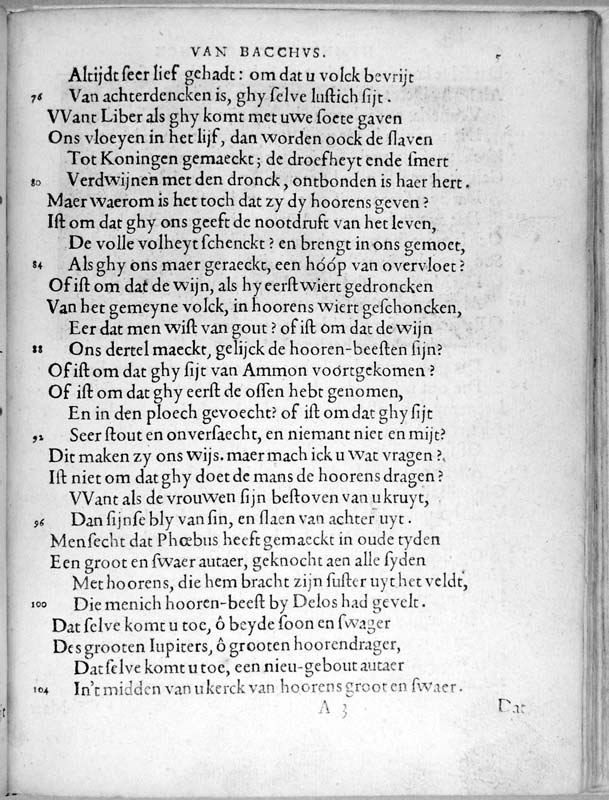 VAN BACCHVS.
Altijdt seer lief gehadt: om dat u volck bevrijt
76 Van achterdencken is, ghy selve lustich sijt.
VVant Liber als ghy komt met uwe soete gaven
Ons vloeyen in het lijf, dan worden oock de slaven
Tot Koningen gemaeckt; de droefheyt ende smert
80 Verdwijnen met den dronck, ontbonden is haer hert.
Maer waerom is het toch dat zy dy hoorens geven?
Ist om dat ghy ons geeft de nootdruft van het leven,
De volle volheyt schenckt? en brengt in ons gemoet,
84 Als ghy ons maer geraeckt, een hóóp van overvloet?
Of ist om dat de wijn, als hy eerst wiert gedroncken
Van het gemeyne volck, in hoorens wiert geschoncken,
Eer dat men wist van gout? of ist om dat de wijn
88 Ons dertel maeckt, gelijck de hooren-beesten sijn?
Of ist om dat ghy sijt van Ammon voórtgekomen?
Of ist om dat ghy eerst de ossen hebt genomen,
En in den ploech gevoecht? of ist om dat ghy sijt
92 Seer stout en onversaecht, en niemant niet en mijt?
Dit maken zy ons wijs. maer mach ick u wat vragen?
Ist niet om dat ghy doet de mans de hoorens dragen?
VVant als de vrouwen sijn bestoven van u kruyt,
96 Dan sijnse bly van sin, en slaen van achter uyt.
Men secht dat Phœbus heeft gemaeckt in oude tyden
Een groot en swaer autaer, geknocht aen alle syden
Met hoorens, die hem bracht zijn suster uyt het veldt,
100 Die menich hooren-beest by Delos had gevelt.
Dat selve komt u toe, ô beyde soon en swager
Des grooten Iupiters, ô grooten hoorendrager,
Dat selve komt u toe, een nieu-gebout autaer
104 In't midden van u kerck van hoorens groot en swaer.
A 3 Dat